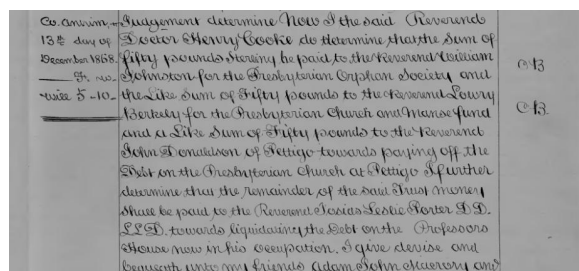 Co. Antrim,
13th day of
December 1868.
Judgement determine Now I the said Reverend
Doctor Henry Cooke do determine that the sum of
fifty pounds Stereing be paid to the Reverend William
Johnston for the Presbyterian Orphan Society and
the Like Sum of Fifty pounds to the Reverend Lowry
Berkely for the Presbyterian Church and Manse fund
and a Like Sum of Fifty pounds to the Reverend
John Donaldson of Pettigo towards paying off the
Debt on the Presbyterian Church at Pettigo I further
determine that the remainder of the said Trust money
shall be paid to the Reverend Josias Leslie Porter D.D.
L L D. towards liquidating the Debt on the Professors
House now in his occupation. I give devise and
bequeath unto my friends Adam John Macrory and